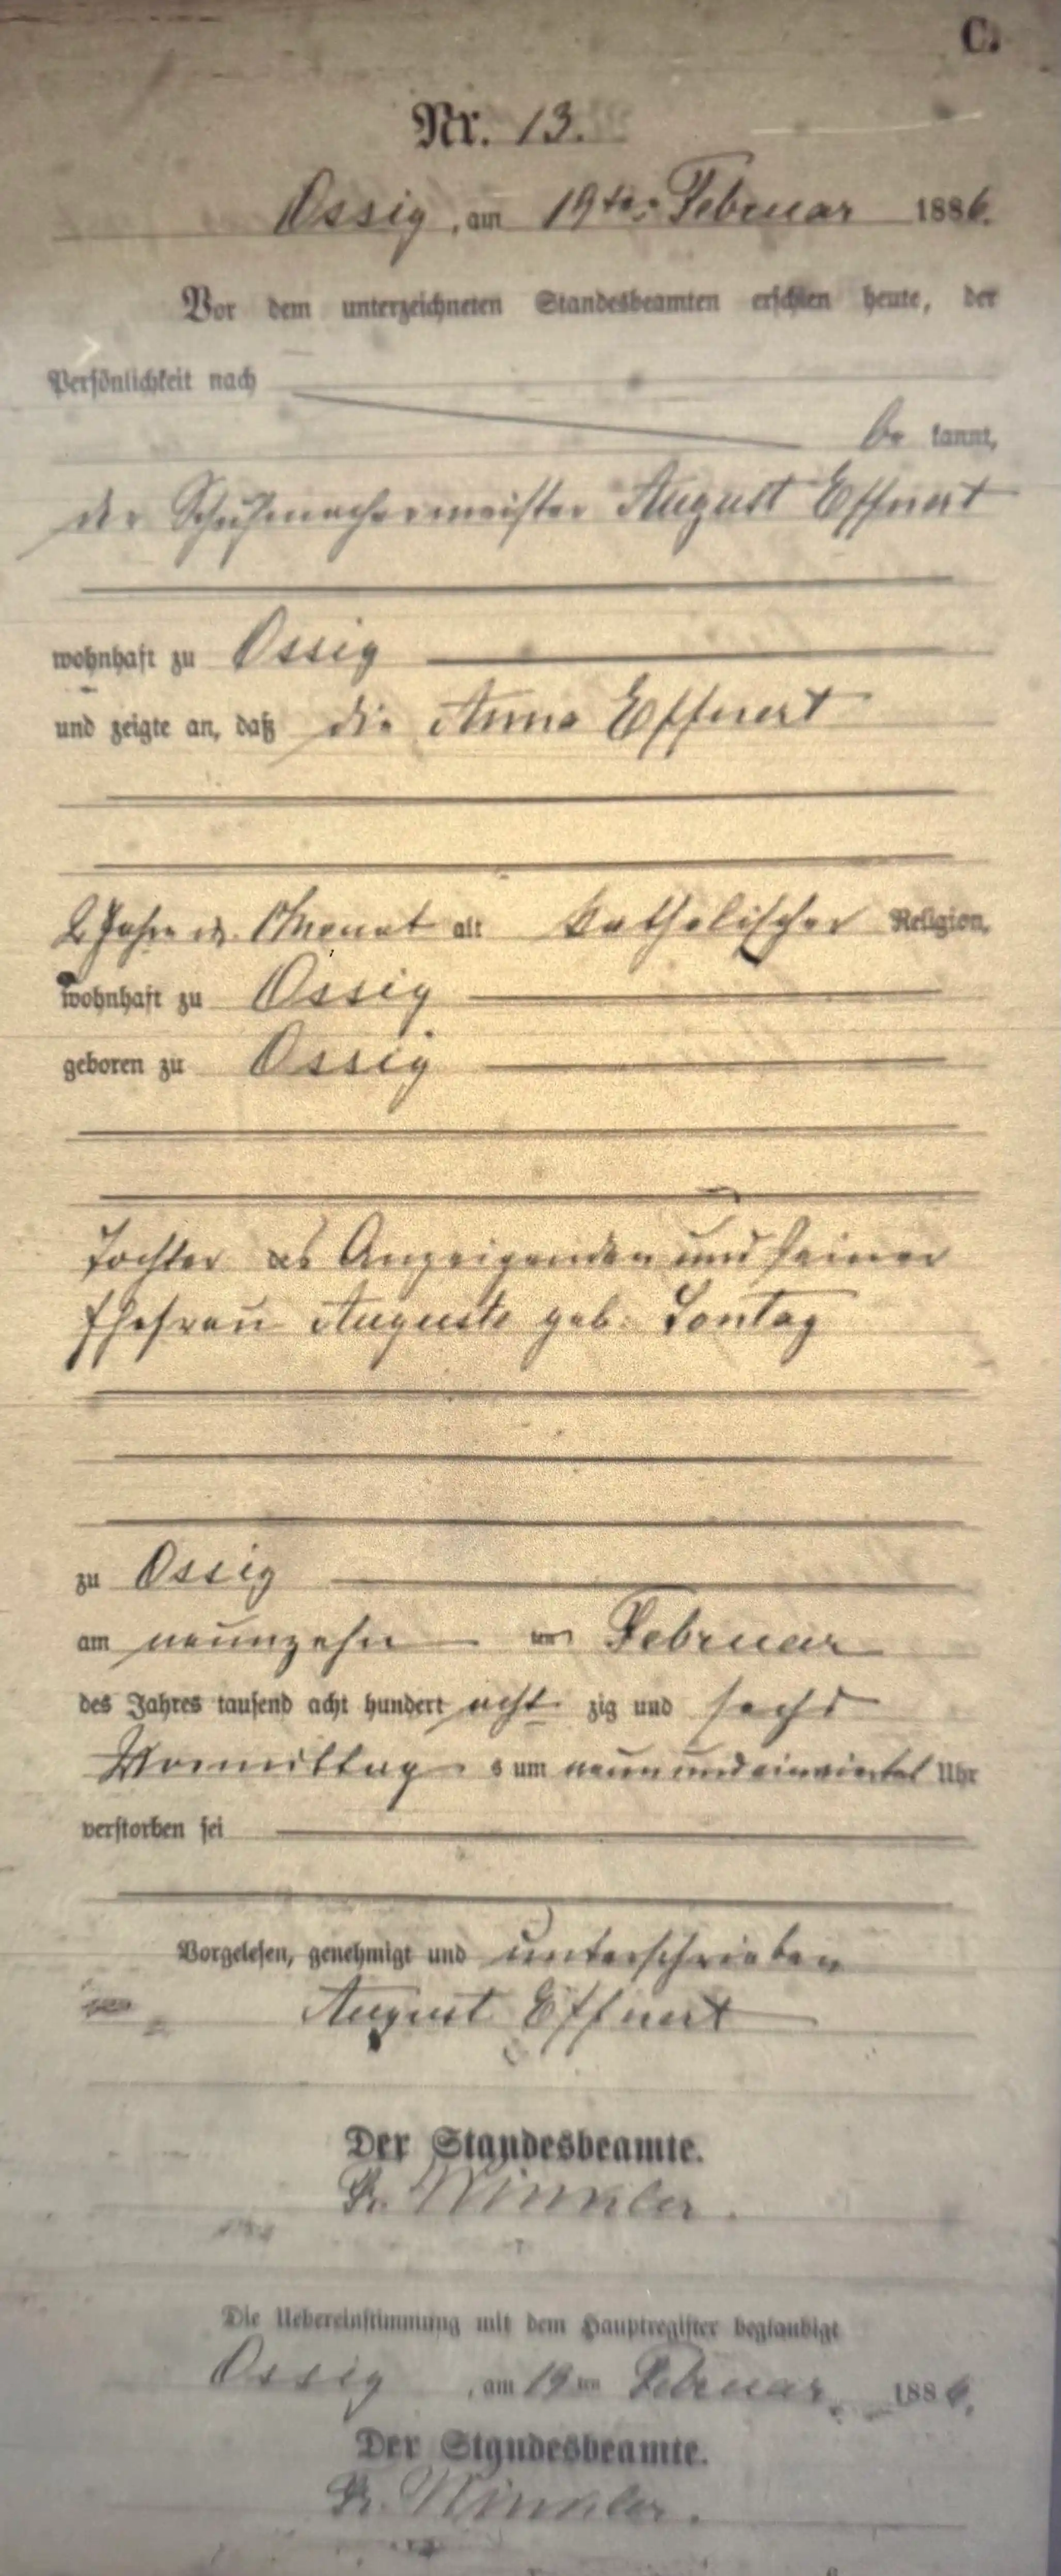 C.
Nr. 13.
Ossig, am 19ten Februar 1886.
Vor dem unterzeichneten Standesbeamten erschien heute, der
Persönlichkeit nach
be kannt,
der Schuhmachermeister August Effnert
wohnhaft zu Ossig
und zeigte an, daß die Anna Effnert
2 Jahre u. 1 Monat alt katholischer Religion,
wohnhaft zu Ossig
geboren zu Ossig
Tochter des Anzeigenden und seiner
Ehefrau Auguste geb. Sontag
zu Ossig
am neunzehn ten Februar
des Jahres tausend acht hundert acht zig und sechs
Vormittag s um neun und einviertel Uhr
verstorben sei
Vorgelesen, genehmigt und unterschrieben
August Effnert
Der Standesbeamte.
Winkler.
Die Uebereinstimmung mit dem Hauptregister beglaubigt
Ossig, am 19ten Februar 1886.
Der Standesbeamte.
Winkler.